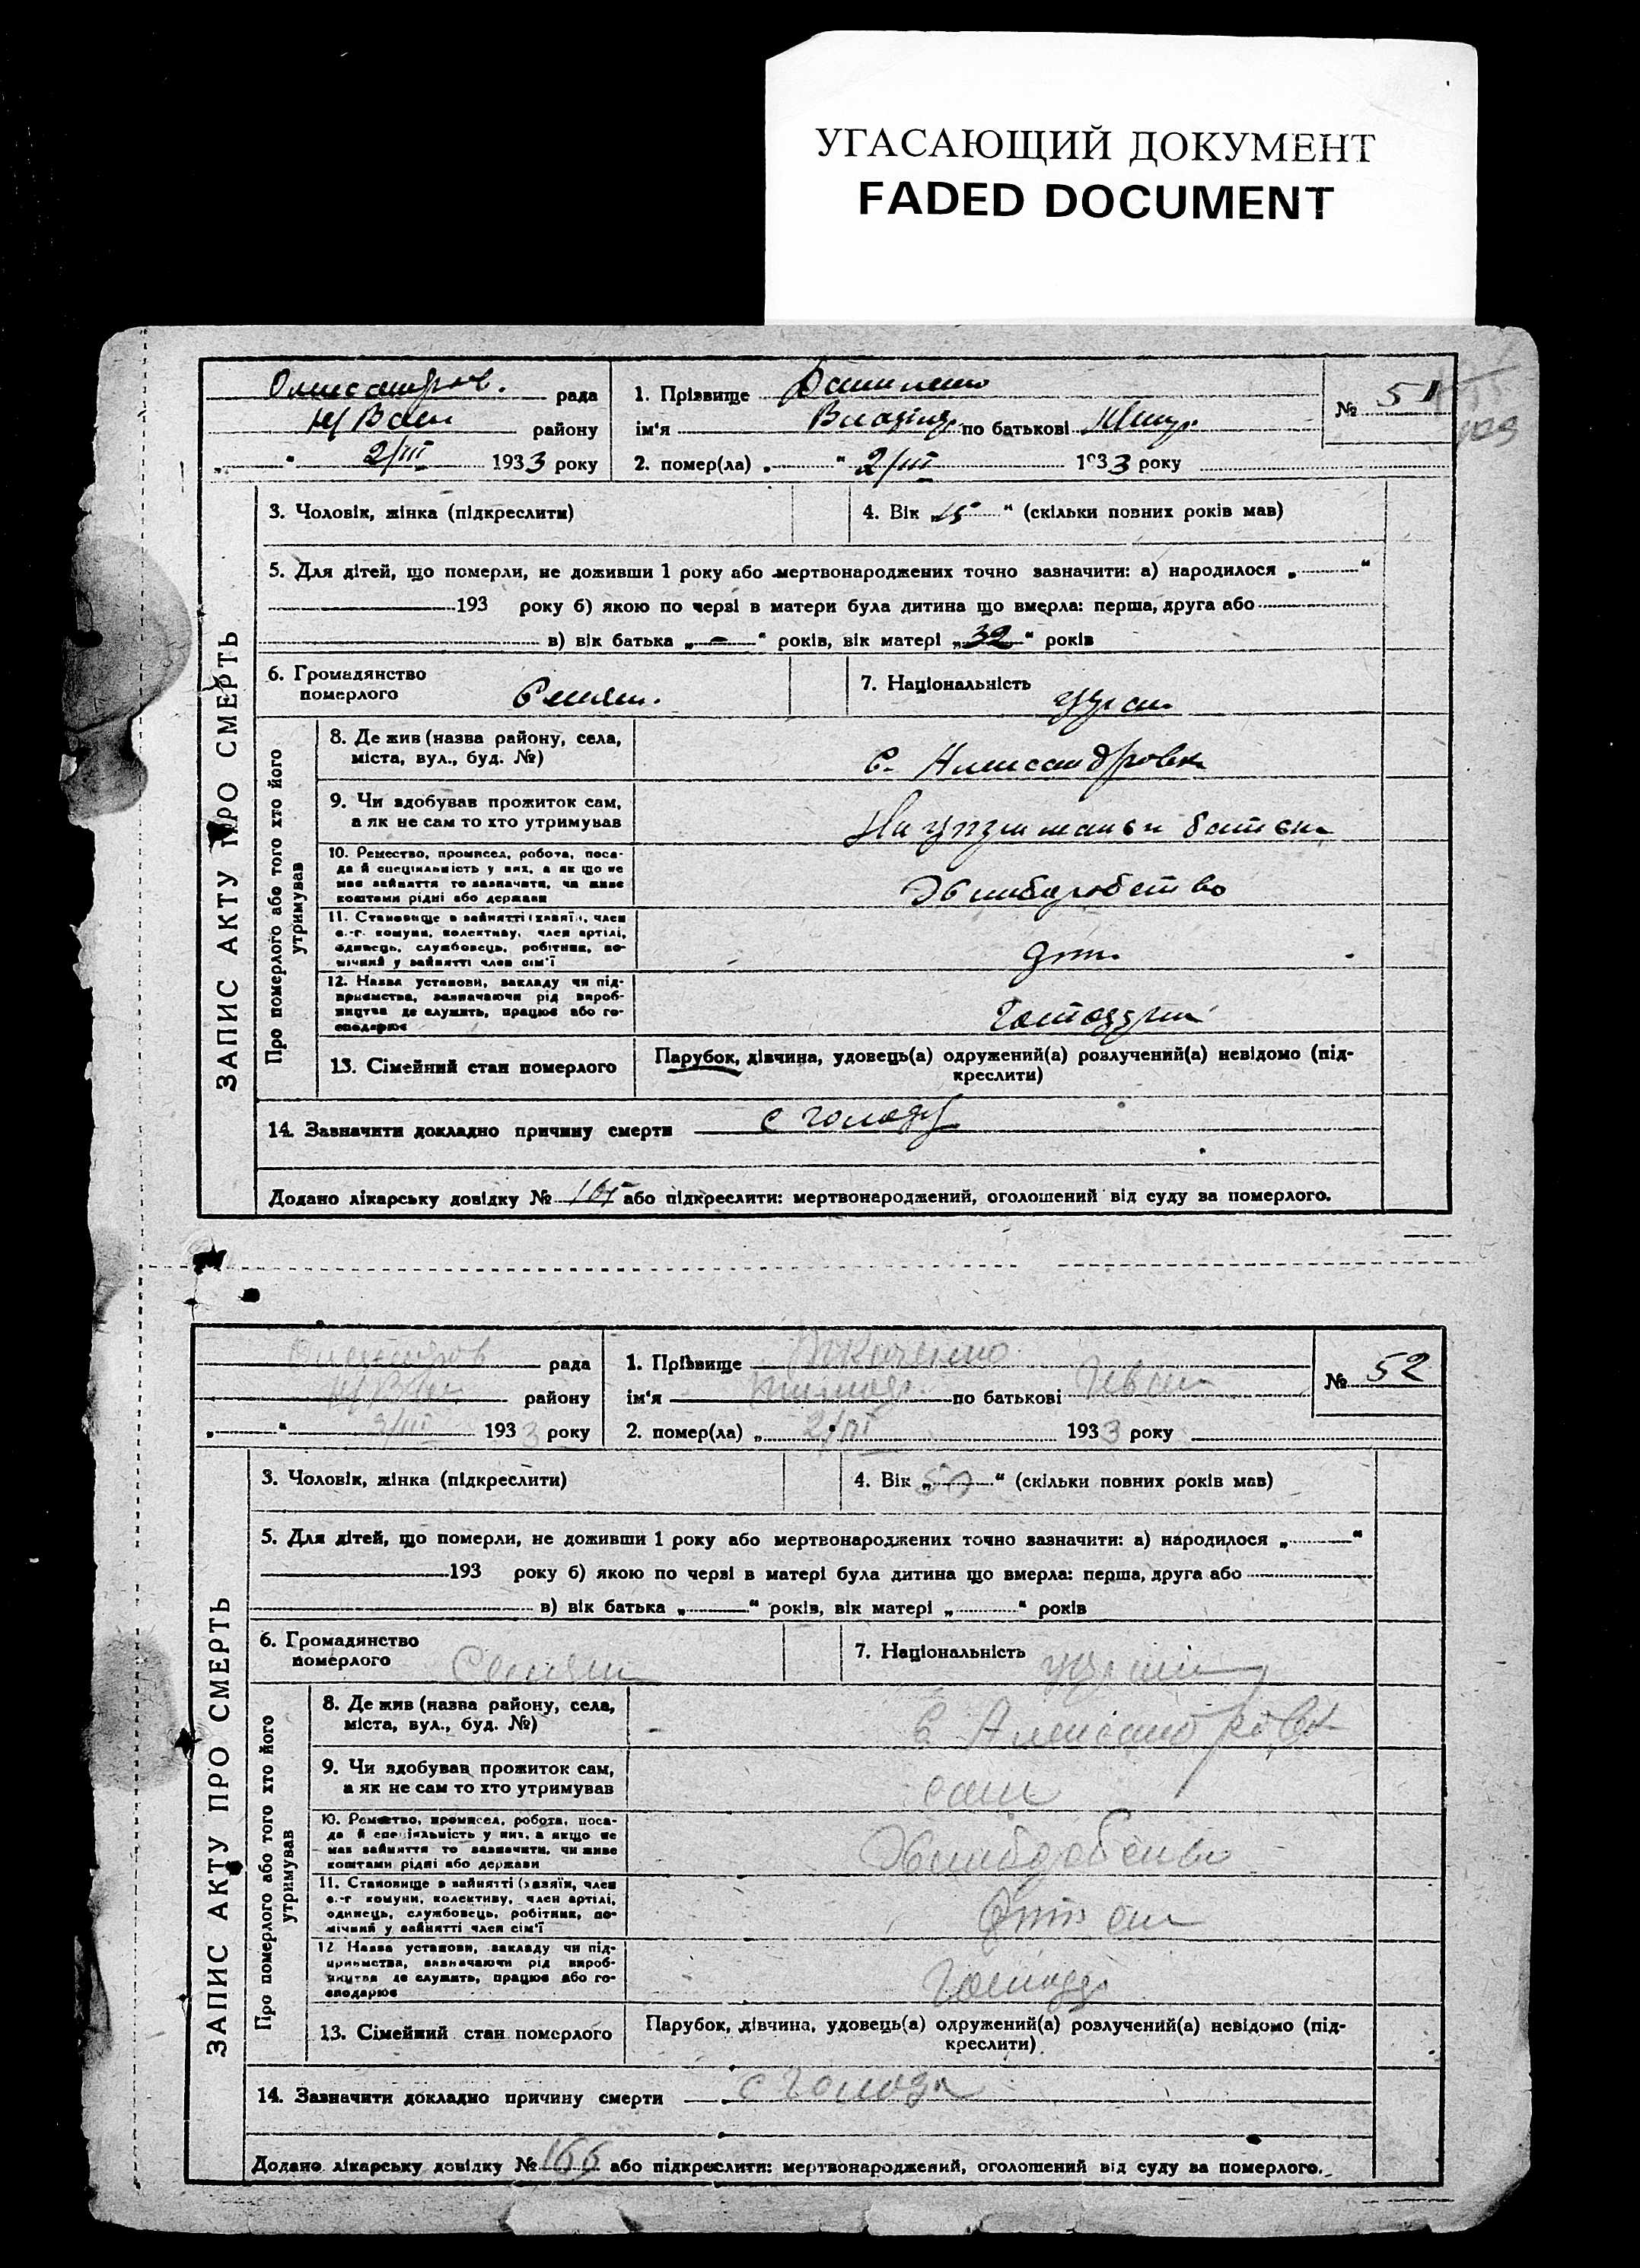 УГАСАЮЩИЙ ДОКУМЕНТ
FADED DOCUMENT
рада
району
2/III 1933 року
1. Прізвище
ім'я по батькові
2. помер(ла) „ " 2/III 1933 року
№ 51
ЗАПИС АКТУ ПРО СМЕРТЬ
3. Чоловік, жінка (підкреслити)
4. Вік „15" (скільки повних років мав)
5. Для дітей, що померли, не доживши 1 року або мертвонароджених точно зазначити: а) народилося „ "
193 року б) якою по черзі в матери була дитина що вмерла: перша, друга або
в) вік батька „–" років, вік матері „32" років
6. Громадянство
померлого
7. Національність
Про померлого або того хто його
утримував
8. Де жив (назва району, села,
міста, вул., буд. №)
с. Александровк
9. Чи здобував прожиток сам,
а як не сам то хто утримував
10. Ремество, промисел, робота, поса-
да й спеціяльність у них, а як що не
мав зайняття то зазначити, чи живе
коштами рідні або держави
Хлиборобство
11. Становище в зайнятті (хазяїн, член
с.-г. комуни, колективу, член артілі,
одинець, службовець, робітник, по-
мічний у зайнятті член сім'ї
12. Назва установи, закладу чи під-
приємства, зазначаючи рід вироб-
ництва де служить, працює або го-
сподарює
13. Сімейний стан померлого
Парубок, дівчина, удовець(а) одружений(а) розлучений(а) невідомо (під-
креслити)
14. Зазначити докладно причину смерти с голоду
Додано лікарську довідку № або підкреслити: мертвонароджений, оголошений від суду за померлого.
рада
району
3/III 1933 року
1. Прізвище Ткаченко
ім'я по батькові Іван
2. помер(ла) „ " 2/III 1933 року
№ 52
ЗАПИС АКТУ ПРО СМЕРТЬ
3. Чоловік, жінка (підкреслити)
4. Вік „ " (скільки повних років мав)
5. Для дітей, що померли, не доживши 1 року або мертвонароджених точно зазначити: а) народилося „ "
193 року б) якою по черзі в матері була дитина що вмерла: перша, друга або
в) вік батька „ " років, вік матері „ " років
6. Громадянство
померлого
7. Національність
Про померлого або того хто його
утримував
8. Де жив (назва району, села,
міста, вул., буд. №)
с Александровк
9. Чи здобував прожиток сам,
а як не сам то хто утримував
сам
10. Ремество, промисел, робота, поса-
да й спеціяльність у них, а якщо не
мав зайняття то зазначити, чи живе
коштами рідні або держави
11. Становище в зайнятті (хазяїн, член
с.-г комуни, колективу, член артілі,
одинець, службовець, робітник, по-
мічний у зайнятті член сім'ї
12 Назва установи, закладу чи під-
приємства, зазначаючи рід вироб-
ництва де служить, працює або го-
сподарює
13. Сімейний стан померлого
Парубок, дівчина, удовець(а) одружений(а) розлучений(а) невідомо (під-
креслити)
14. Зазначити докладно причину смерти с голода
Додано лікарську довідку № 166 або підкреслити: мертвонароджений, оголошений від суду за померлого.